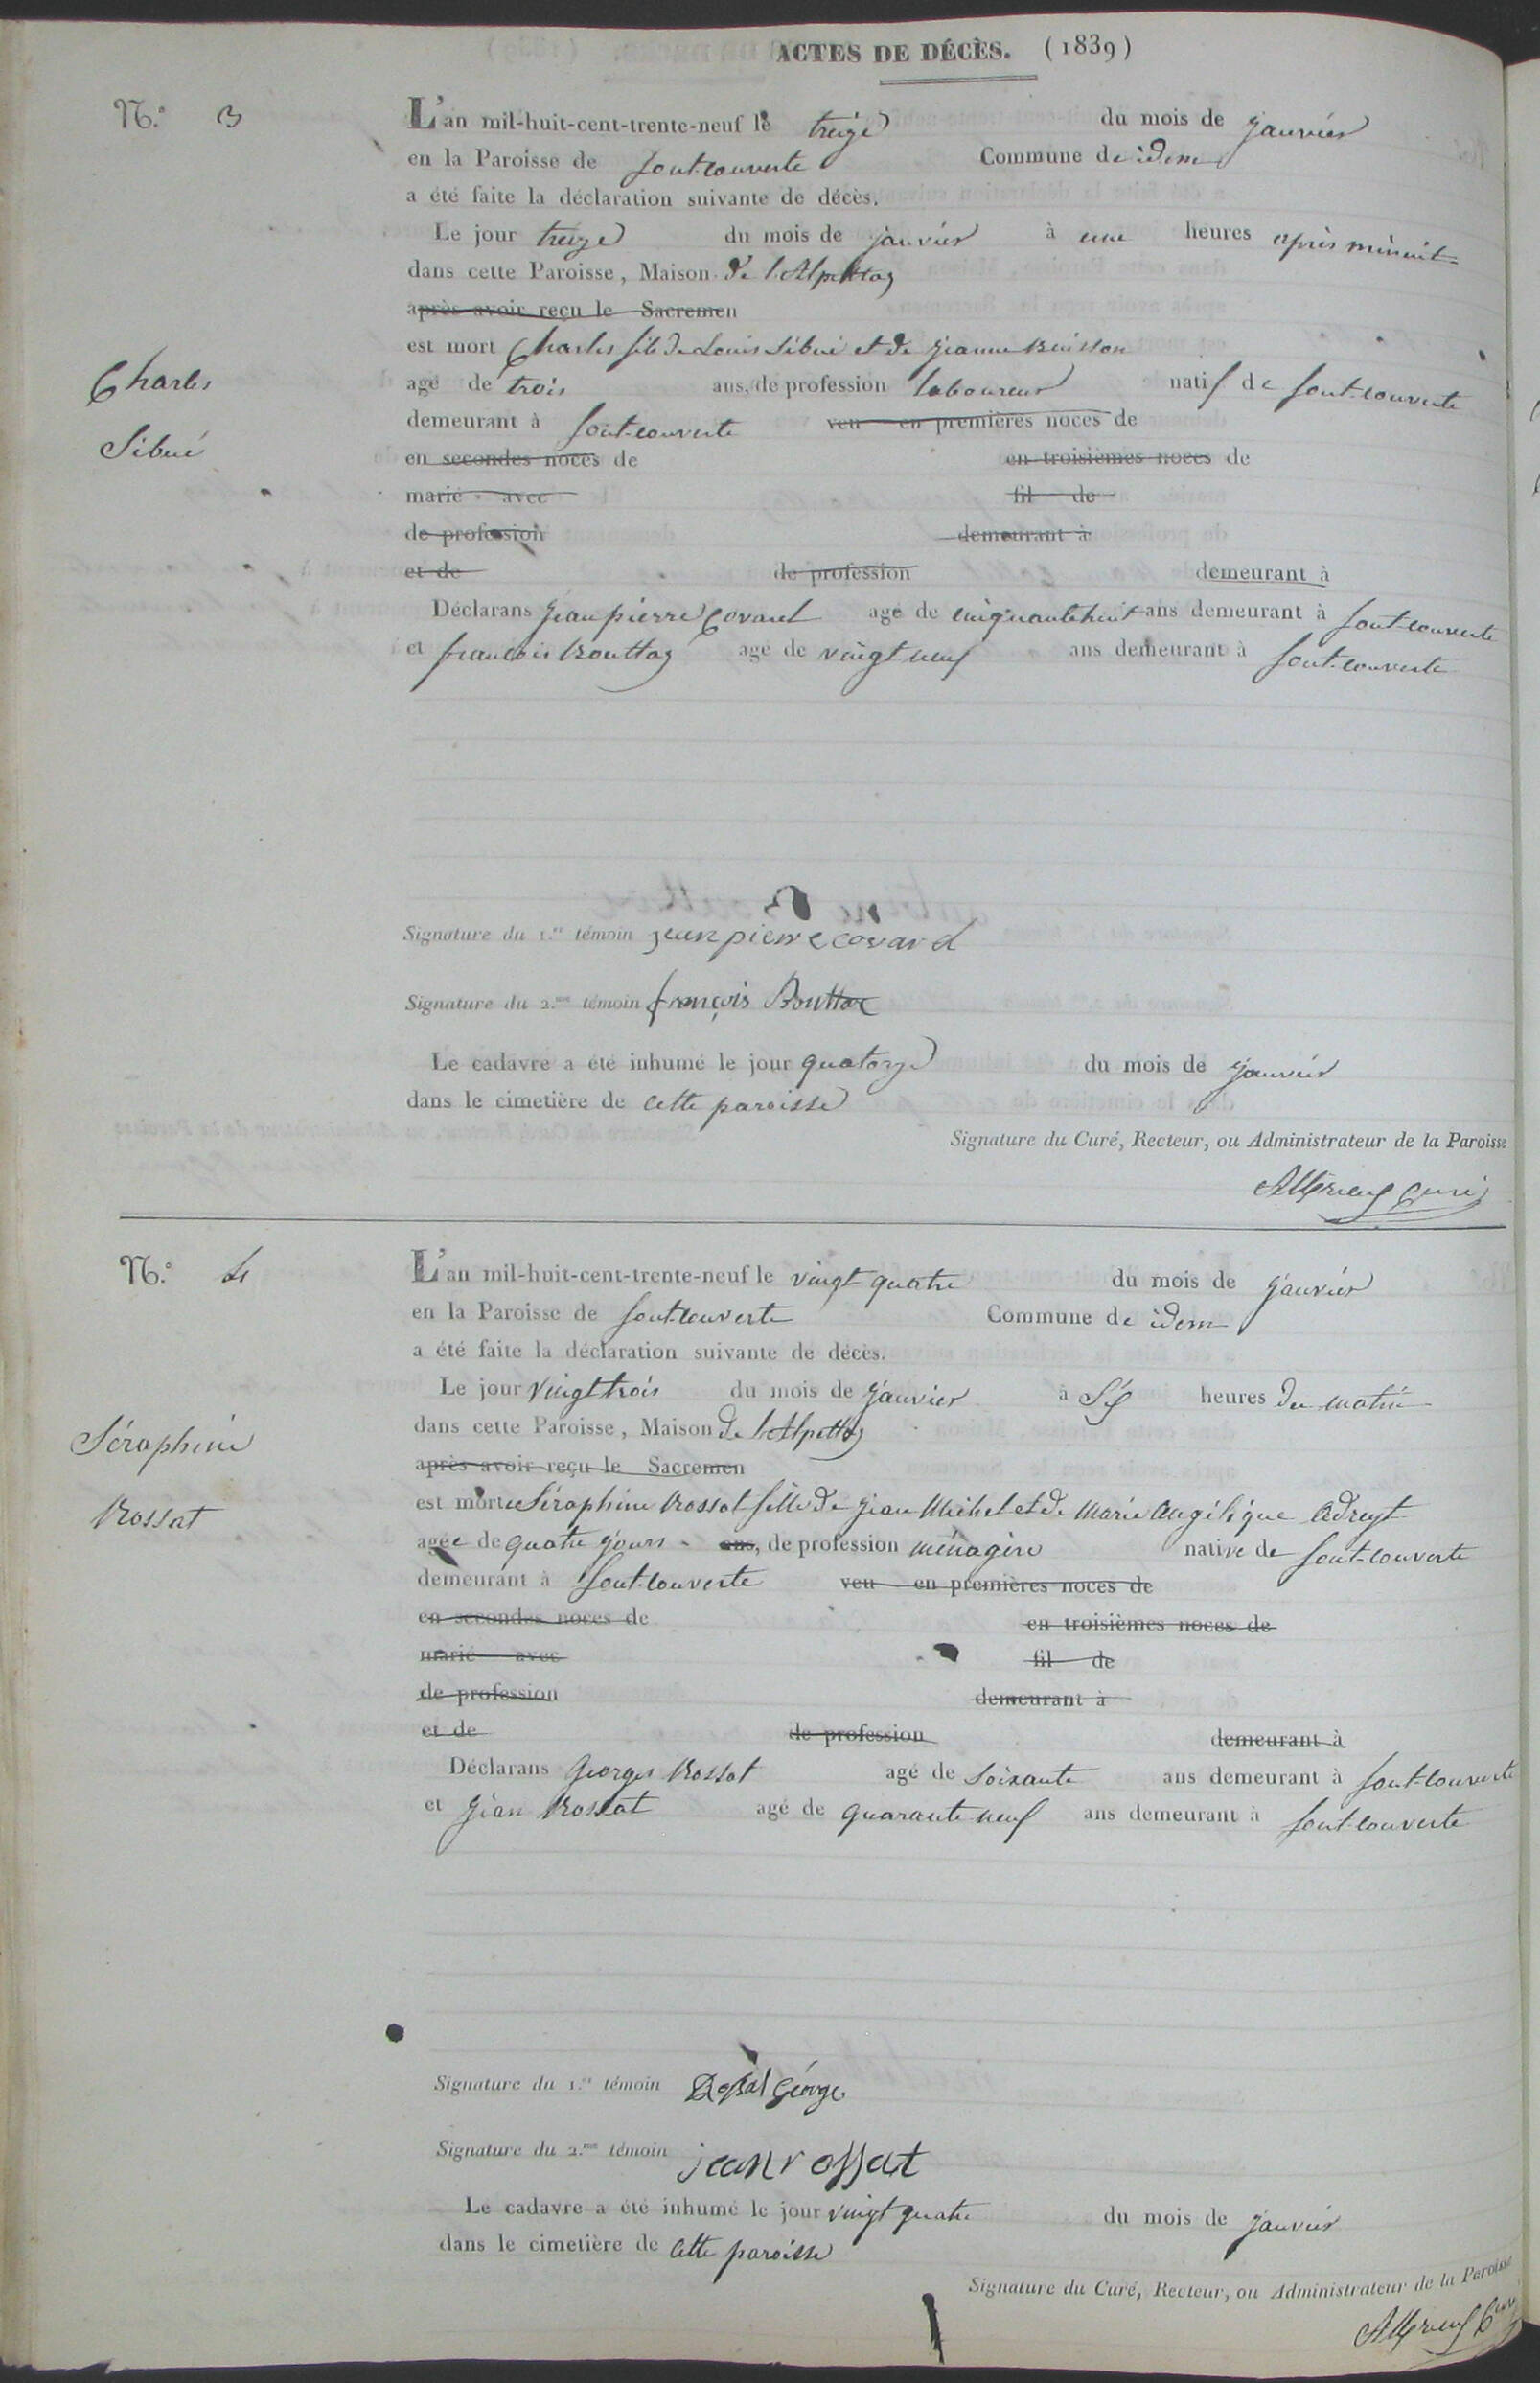 ACTES DE DÉCÈS. (1839)
N.° 3
L'an mil-huit-cent-trente-neuf le treize du mois de janvier
en la Paroisse de font-couverte Commune de idem
a été faite la déclaration suivante de décès.
Le jour treize du mois de janvier à une heures après minuit
dans cette Paroisse, Maison de l'Alpettaz
après avoir reçu le Sacremen
est mort Charles fils de Louis Sibué et de jeanne Buisson
Charles
Sibué
agé de trois ans, de profession laboureur natif de font-couverte
demeurant à font-couverte veu en premières noces de
en secondes noces de en troisièmes noces de
marié avec fil de
de profession demeurant à
et de de profession demeurant à
Déclarans jean pierre Covarel agé de cinquante huit ans demeurant à font-couverte
et françois Bouttaz agé de vingt neuf ans demeurant à font-couverte
Signature du 1.er témoin jean pierre covarel
Signature du 2.me témoin françois Bouttaz
Le cadavre a été inhumé le jour quatorze du mois de janvier
dans le cimetière de cette paroisse
Signature du Curé, Recteur, ou Administrateur de la Paroisse
curé
N.° 4
L'an mil-huit-cent-trente-neuf le vingt quatre du mois de janvier
en la Paroisse de font-couverte Commune de idem
a été faite la déclaration suivante de décès.
Le jour vingt trois du mois de janvier à heures du matin
dans cette Paroisse, Maison de l'Alpettaz
après avoir reçu le Sacremen
Séraphine
Rossat
est morte Séraphine Rossat fille de jean Michel et de Marie Angélique
agée de quatre jours ans, de profession ménagère native de font-couverte
demeurant à font-couverte veu en premières noces de
en secondes noces de en troisièmes noces de
marié avec fil de
de profession demeurant à
et de de profession demeurant à
Déclarans Georges Rossat agé de soixante ans demeurant à font-couverte
et jean Rossat agé de quarante neuf ans demeurant à font-couverte
Signature du 1.er témoin Rossat George
Signature du 2.me témoin jean rossat
Le cadavre a été inhumé le jour vingt quatre du mois de janvier
dans le cimetière de cette paroisse
Signature du Curé, Recteur, ou Administrateur de la Paroisse